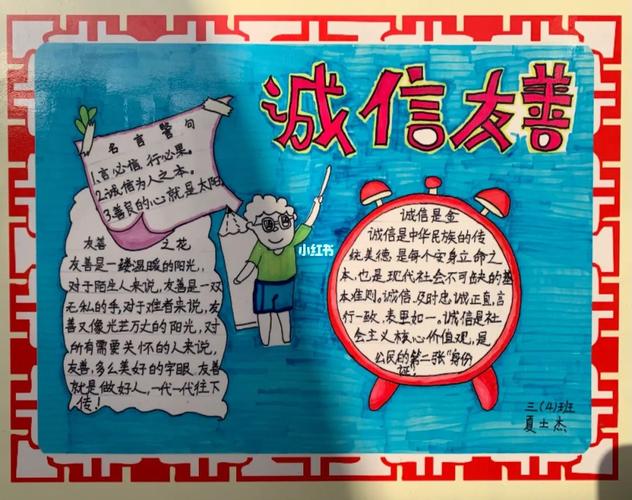 诚信友善
名言警句
1.言必信,行必果。
2.诚信为人之本。
3.善良的心就是太阳
友善 之花
友善是一缕温暖的阳光,
对于陌生人来说,友善是一双
无私的手,对于难者来说,友
善又像光芒万丈的阳光,对
所有需要关怀的人来说,
友善,多么美好的字眼,友善
就是做好人,一代一代往下
传!
小红书
诚信是金
诚信是中华民族的传
统美德,是每个安身立命之
本,也是现代社会不可缺的基
本准则。诚信,及时忠诚正直,言
行一致,表里如一。诚信是社
会主义核心价值观,是
公民的第二张"身份
证!
三(4)班
夏士杰